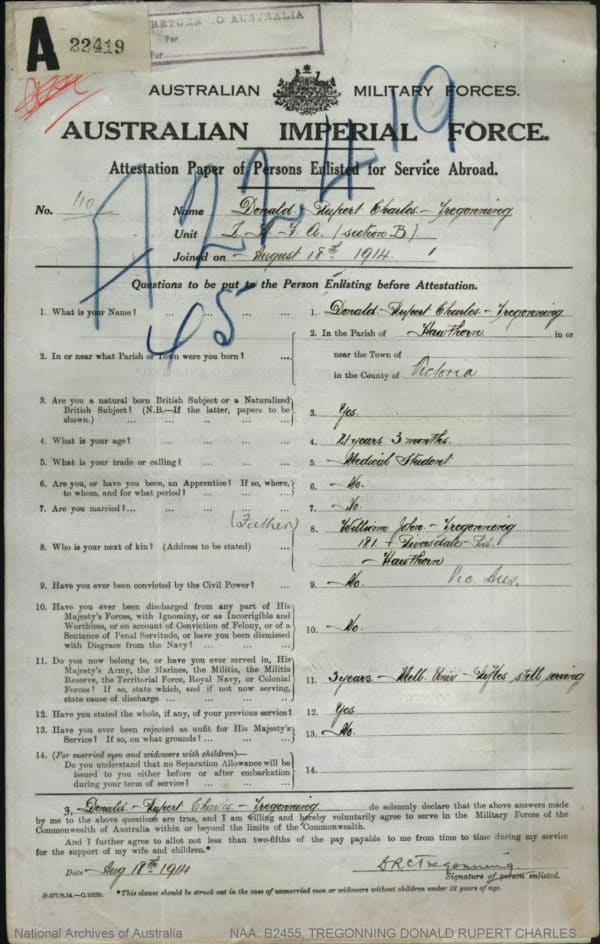 RETURN TO AUSTRALIA
Per
For
A 22419
AUSTRALIAN MILITARY FORCES.
AUSTRALIAN IMPERIAL FORCE.
A22419
45
Attestation Paper of Persons Enlisted for Service Abroad.
No. 110 Name Donald Rupert Charles - Tregonning
Unit (section B)
Joined on August 18th 1914
Questions to be put to the Person Enlisting before Attestation.
1. What is your Name? ... ... 1. Donald - Rupert Charles - Tregonning
2. In or near what Parish or Town were you born? ... 2. In the Parish of Hawthorn in or
near the Town of
in the County of Victoria
3. Are you a natural born British Subject or a Naturalized
British Subject? (N.B.—If the latter, papers to be
shown.) 3. Yes.
4. What is your age? 4. 21 years 3 months.
5. What is your trade or calling? 5. Medical Student
6. Are you, or have you been, an Apprentice? If so, where,
to whom, and for what period? 6. No.
7. Are you married? 7. No.
(Father)
8. Who is your next of kin? (Address to be stated) 8. William John - Tregonning
181 Riversdale - Rd.
Hawthorn
Vic
9. Have you ever been convicted by the Civil Power? 9. No.
10. Have you ever been discharged from any part of His
Majesty's Forces, with Ignominy, or as Incorrigible and
Worthless, or on account of Conviction of Felony, or of a
Sentence of Penal Servitude, or have you been dismissed
with Disgrace from the Navy? 10. No.
11. Do you now belong to, or have you ever served in, His
Majesty's Army, the Marines, the Militia, the Militia
Reserve, the Territorial Force, Royal Navy, or Colonial
Forces? If so, state which, and if not now serving,
state cause of discharge 11. 3 years - Melb. Univ - Rifles still serving
12. Have you stated the whole, if any, of your previous service? 12. Yes
13. Have you ever been rejected as unfit for His Majesty's
Service? If so, on what grounds? 13. No.
14. (For married men and widowers with children)—
Do you understand that no Separation Allowance will be
issued to you either before or after embarkation
during your term of service? 14.
I, Donald - Rupert Charles - Tregonning do solemnly declare that the above answers made
by me to the above questions are true, and I am willing and hereby voluntarily agree to serve in the Military Forces of the
Commonwealth of Australia within or beyond the limits of the Commonwealth.
And I further agree to allot not less than two-fifths of the pay payable to me from time to time during my service
for the support of my wife and children.*
Date Aug 18th 1914 D R C Tregonning
Signature of person enlisted.
*This clause should be struck out in the case of unmarried men or widowers without children under 18 years of age.
National Archives of Australia NAA: B2455, TREGONNING DONALD RUPERT CHARLES